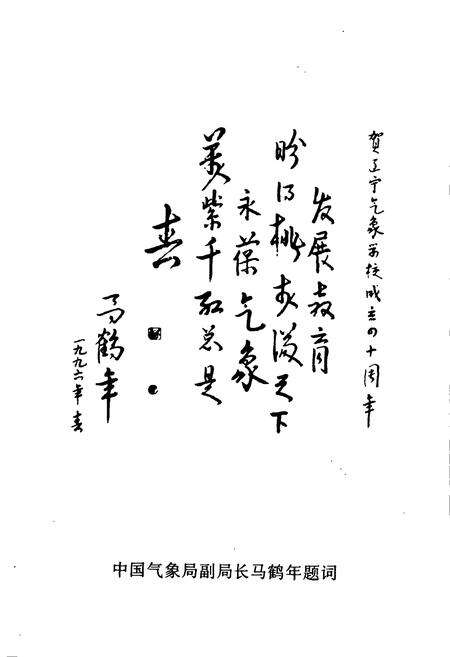 贺辽宁气象学校成立四十周年
发展教育
盼得桃李满天下
永葆气象
萬紫千红总是
春
马鹤年
一九九六年春
中国气象局副局长马鹤年题词